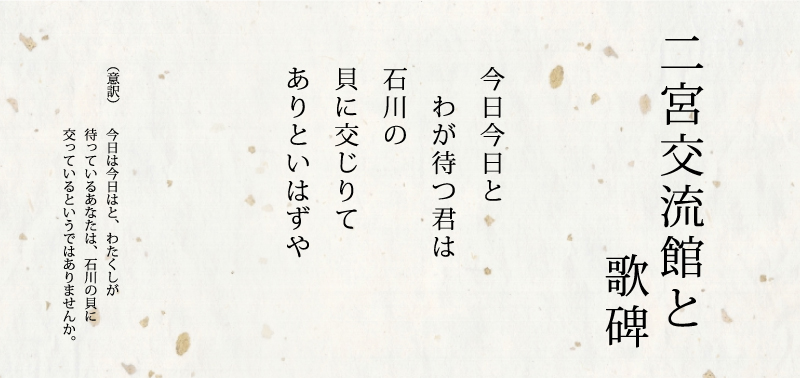 二宮交流館と
歌碑
今日今日と
わが待つ君は
石川の
貝に交じりて
ありといはずや
（意訳）
今日は今日はと、わたくしが
待っているあなたは、石川の貝に
交っているというではありませんか。